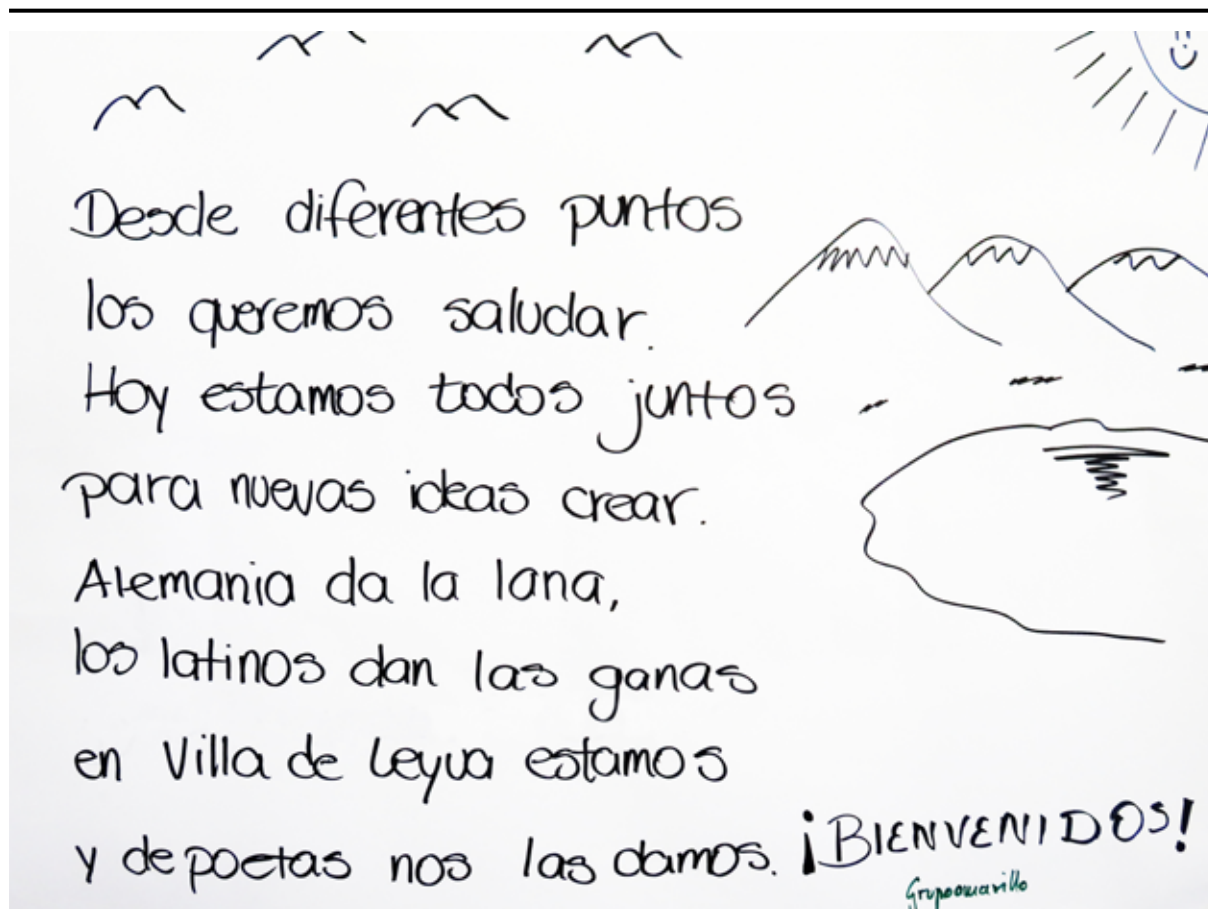 Desde diferentes puntos
los queremos saludar.
Hoy estamos todos juntos
para nuevas ideas crear.
Alemania da la lana,
los latinos dan las ganas
en Villa de Leyva estamos
y de poetas nos las damos.
¡BIENVENIDOS!
Grupo amarillo